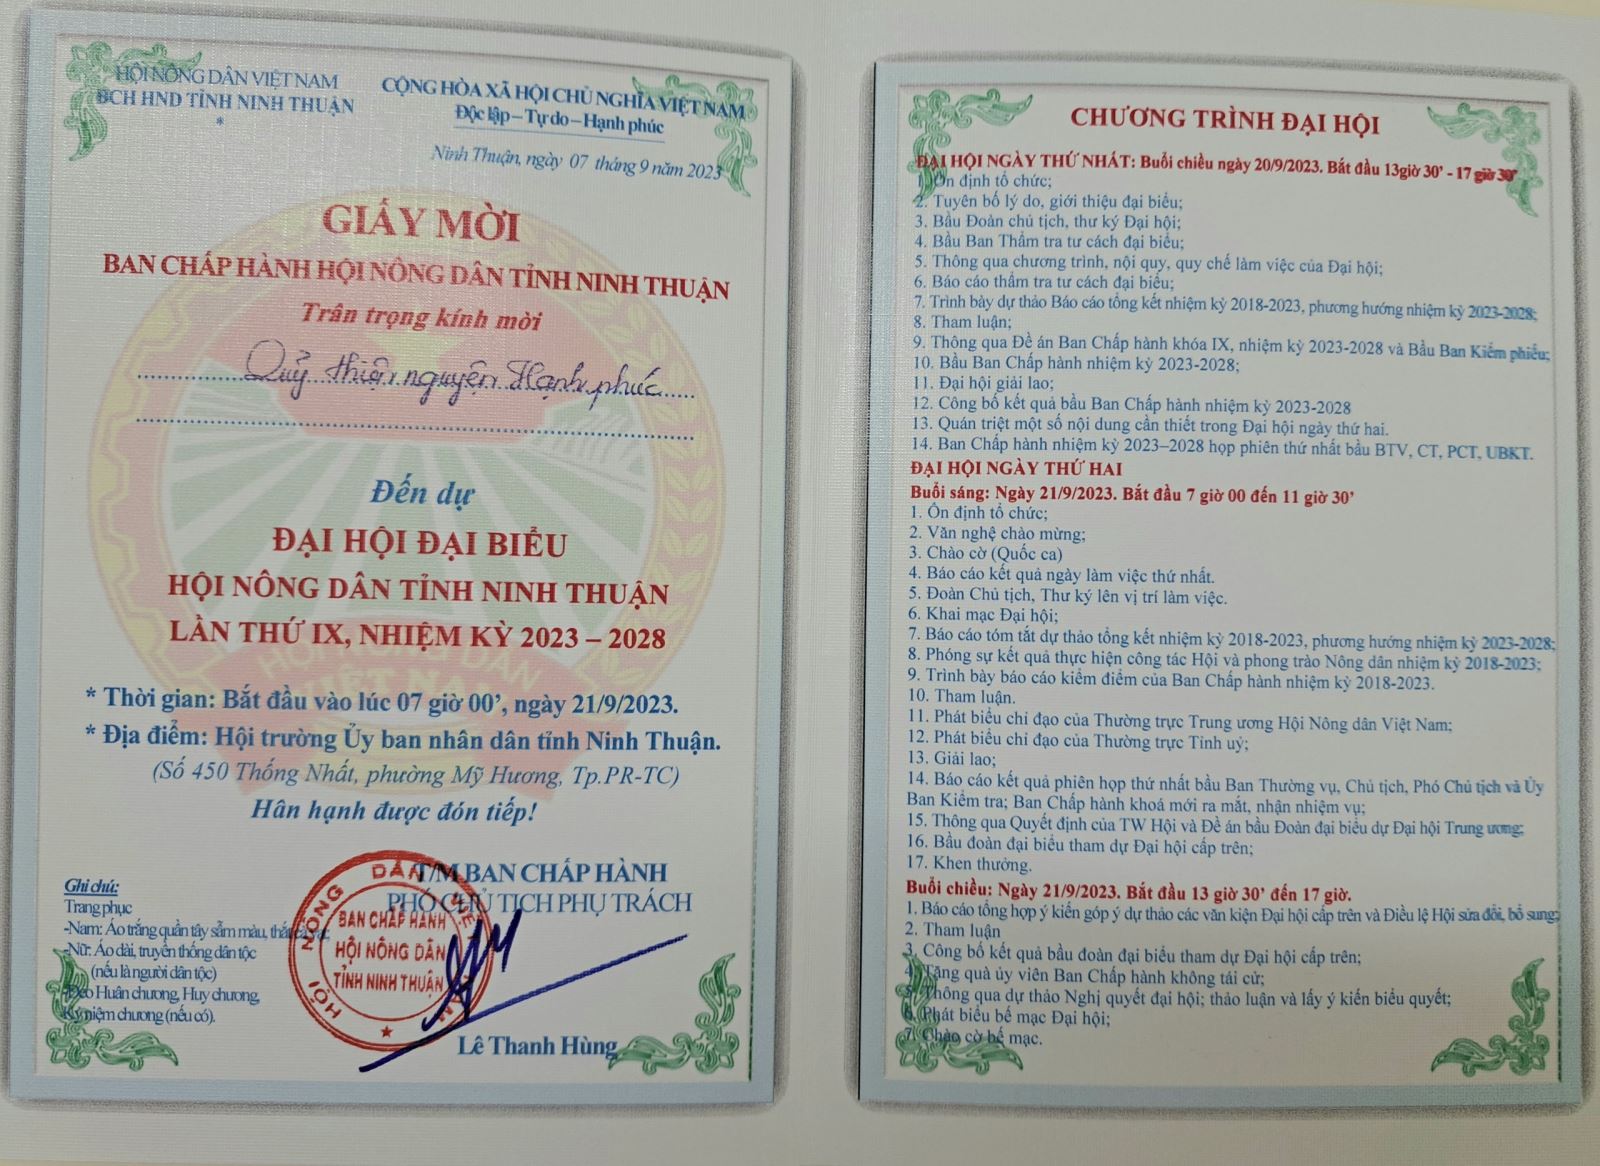 HỘI NÔNG DÂN VIỆT NAM
BCH HND TỈNH NINH THUẬN
*
CỘNG HÒA XÃ HỘI CHỦ NGHĨA VIỆT NAM
Độc lập – Tự do – Hạnh phúc
Ninh Thuận, ngày 07 tháng 9 năm 2023
GIẤY MỜI
BAN CHẤP HÀNH HỘI NÔNG DÂN TỈNH NINH THUẬN
Trân trọng kính mời
Quỷ thiện nguyện Hạnh phúc
Đến dự
ĐẠI HỘI ĐẠI BIỂU
HỘI NÔNG DÂN TỈNH NINH THUẬN
LẦN THỨ IX, NHIỆM KỲ 2023 – 2028
HỘI NÔNG DÂN
VIỆT NAM
* Thời gian: Bắt đầu vào lúc 07 giờ 00’, ngày 21/9/2023.
* Địa điểm: Hội trường Ủy ban nhân dân tỉnh Ninh Thuận.
(Số 450 Thống Nhất, phường Mỹ Hương, Tp.PR-TC)
Hân hạnh được đón tiếp!
T/M BAN CHẤP HÀNH
PHÓ CHỦ TỊCH PHỤ TRÁCH
HỘI NÔNG DÂN VIỆT NAM
BAN CHẤP HÀNH
HỘI NÔNG DÂN
TỈNH NINH THUẬN
Lê Thanh Hùng
Ghi chú:
Trang phục
-Nam: Áo trắng quần tây sẫm màu, thắt cà vạt;
-Nữ: Áo dài, truyền thống dân tộc
(nếu là người dân tộc)
-Đeo Huân chương, Huy chương,
Kỷ niệm chương (nếu có).
CHƯƠNG TRÌNH ĐẠI HỘI
ĐẠI HỘI NGÀY THỨ NHẤT: Buổi chiều ngày 20/9/2023. Bắt đầu 13giờ 30’ - 17 giờ 30’
1. Ổn định tổ chức;
2. Tuyên bố lý do, giới thiệu đại biểu;
3. Bầu Đoàn chủ tịch, thư ký Đại hội;
4. Bầu Ban Thẩm tra tư cách đại biểu;
5. Thông qua chương trình, nội quy, quy chế làm việc của Đại hội;
6. Báo cáo thẩm tra tư cách đại biểu;
7. Trình bày dự thảo Báo cáo tổng kết nhiệm kỳ 2018-2023, phương hướng nhiệm kỳ 2023-2028;
8. Tham luận;
9. Thông qua Đề án Ban Chấp hành khóa IX, nhiệm kỳ 2023-2028 và Bầu Ban Kiểm phiếu;
10. Bầu Ban Chấp hành nhiệm kỳ 2023-2028;
11. Đại hội giải lao;
12. Công bố kết quả bầu Ban Chấp hành nhiệm kỳ 2023-2028
13. Quán triệt một số nội dung cần thiết trong Đại hội ngày thứ hai.
14. Ban Chấp hành nhiệm kỳ 2023–2028 họp phiên thứ nhất bầu BTV, CT, PCT, UBKT.
ĐẠI HỘI NGÀY THỨ HAI
Buổi sáng: Ngày 21/9/2023. Bắt đầu 7 giờ 00 đến 11 giờ 30’
1. Ổn định tổ chức;
2. Văn nghệ chào mừng;
3. Chào cờ (Quốc ca)
4. Báo cáo kết quả ngày làm việc thứ nhất.
5. Đoàn Chủ tịch, Thư ký lên vị trí làm việc.
6. Khai mạc Đại hội;
7. Báo cáo tóm tắt dự thảo tổng kết nhiệm kỳ 2018-2023, phương hướng nhiệm kỳ 2023-2028;
8. Phóng sự kết quả thực hiện công tác Hội và phong trào Nông dân nhiệm kỳ 2018-2023;
9. Trình bày báo cáo kiểm điểm của Ban Chấp hành nhiệm kỳ 2018-2023.
10. Tham luận.
11. Phát biểu chỉ đạo của Thường trực Trung ương Hội Nông dân Việt Nam;
12. Phát biểu chỉ đạo của Thường trực Tỉnh uỷ;
13. Giải lao;
14. Báo cáo kết quả phiên họp thứ nhất bầu Ban Thường vụ, Chủ tịch, Phó Chủ tịch và Ủy
Ban Kiểm tra; Ban Chấp hành khoá mới ra mắt, nhận nhiệm vụ;
15. Thông qua Quyết định của TW Hội và Đề án bầu Đoàn đại biểu dự Đại hội Trung ương;
16. Bầu đoàn đại biểu tham dự Đại hội cấp trên;
17. Khen thưởng.
Buổi chiều: Ngày 21/9/2023. Bắt đầu 13 giờ 30’ đến 17 giờ.
1. Báo cáo tổng hợp ý kiến góp ý dự thảo các văn kiện Đại hội cấp trên và Điều lệ Hội sửa đổi, bổ sung;
2. Tham luận
3. Công bố kết quả bầu đoàn đại biểu tham dự Đại hội cấp trên;
4. Tặng quà ủy viên Ban Chấp hành không tái cử;
5. Thông qua dự thảo Nghị quyết đại hội; thảo luận và lấy ý kiến biểu quyết;
6. Phát biểu bế mạc Đại hội;
7. Chào cờ bế mạc.